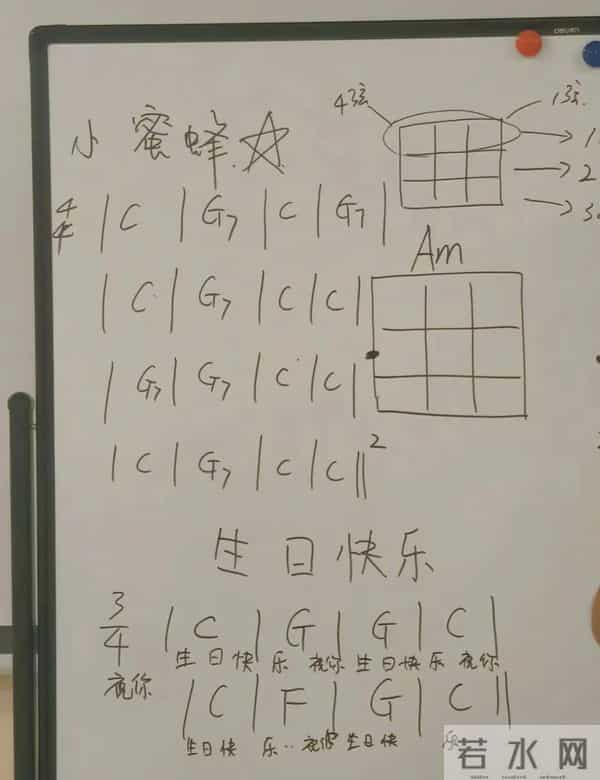 deli
4弦 1弦
小蜜蜂☆
1
2
3
4/4 | C | G7 | C | G7 |
Am
| C | G7 | C | C |
| G7 | G7 | C | C |
| C | G7 | C | C ||²
生日快乐
3/4 | C | G | G | C |
祝你 生日快乐 祝你 生日快乐 祝你
| C | F | G | C ||
生日快乐.. 祝你 生日快
若水网